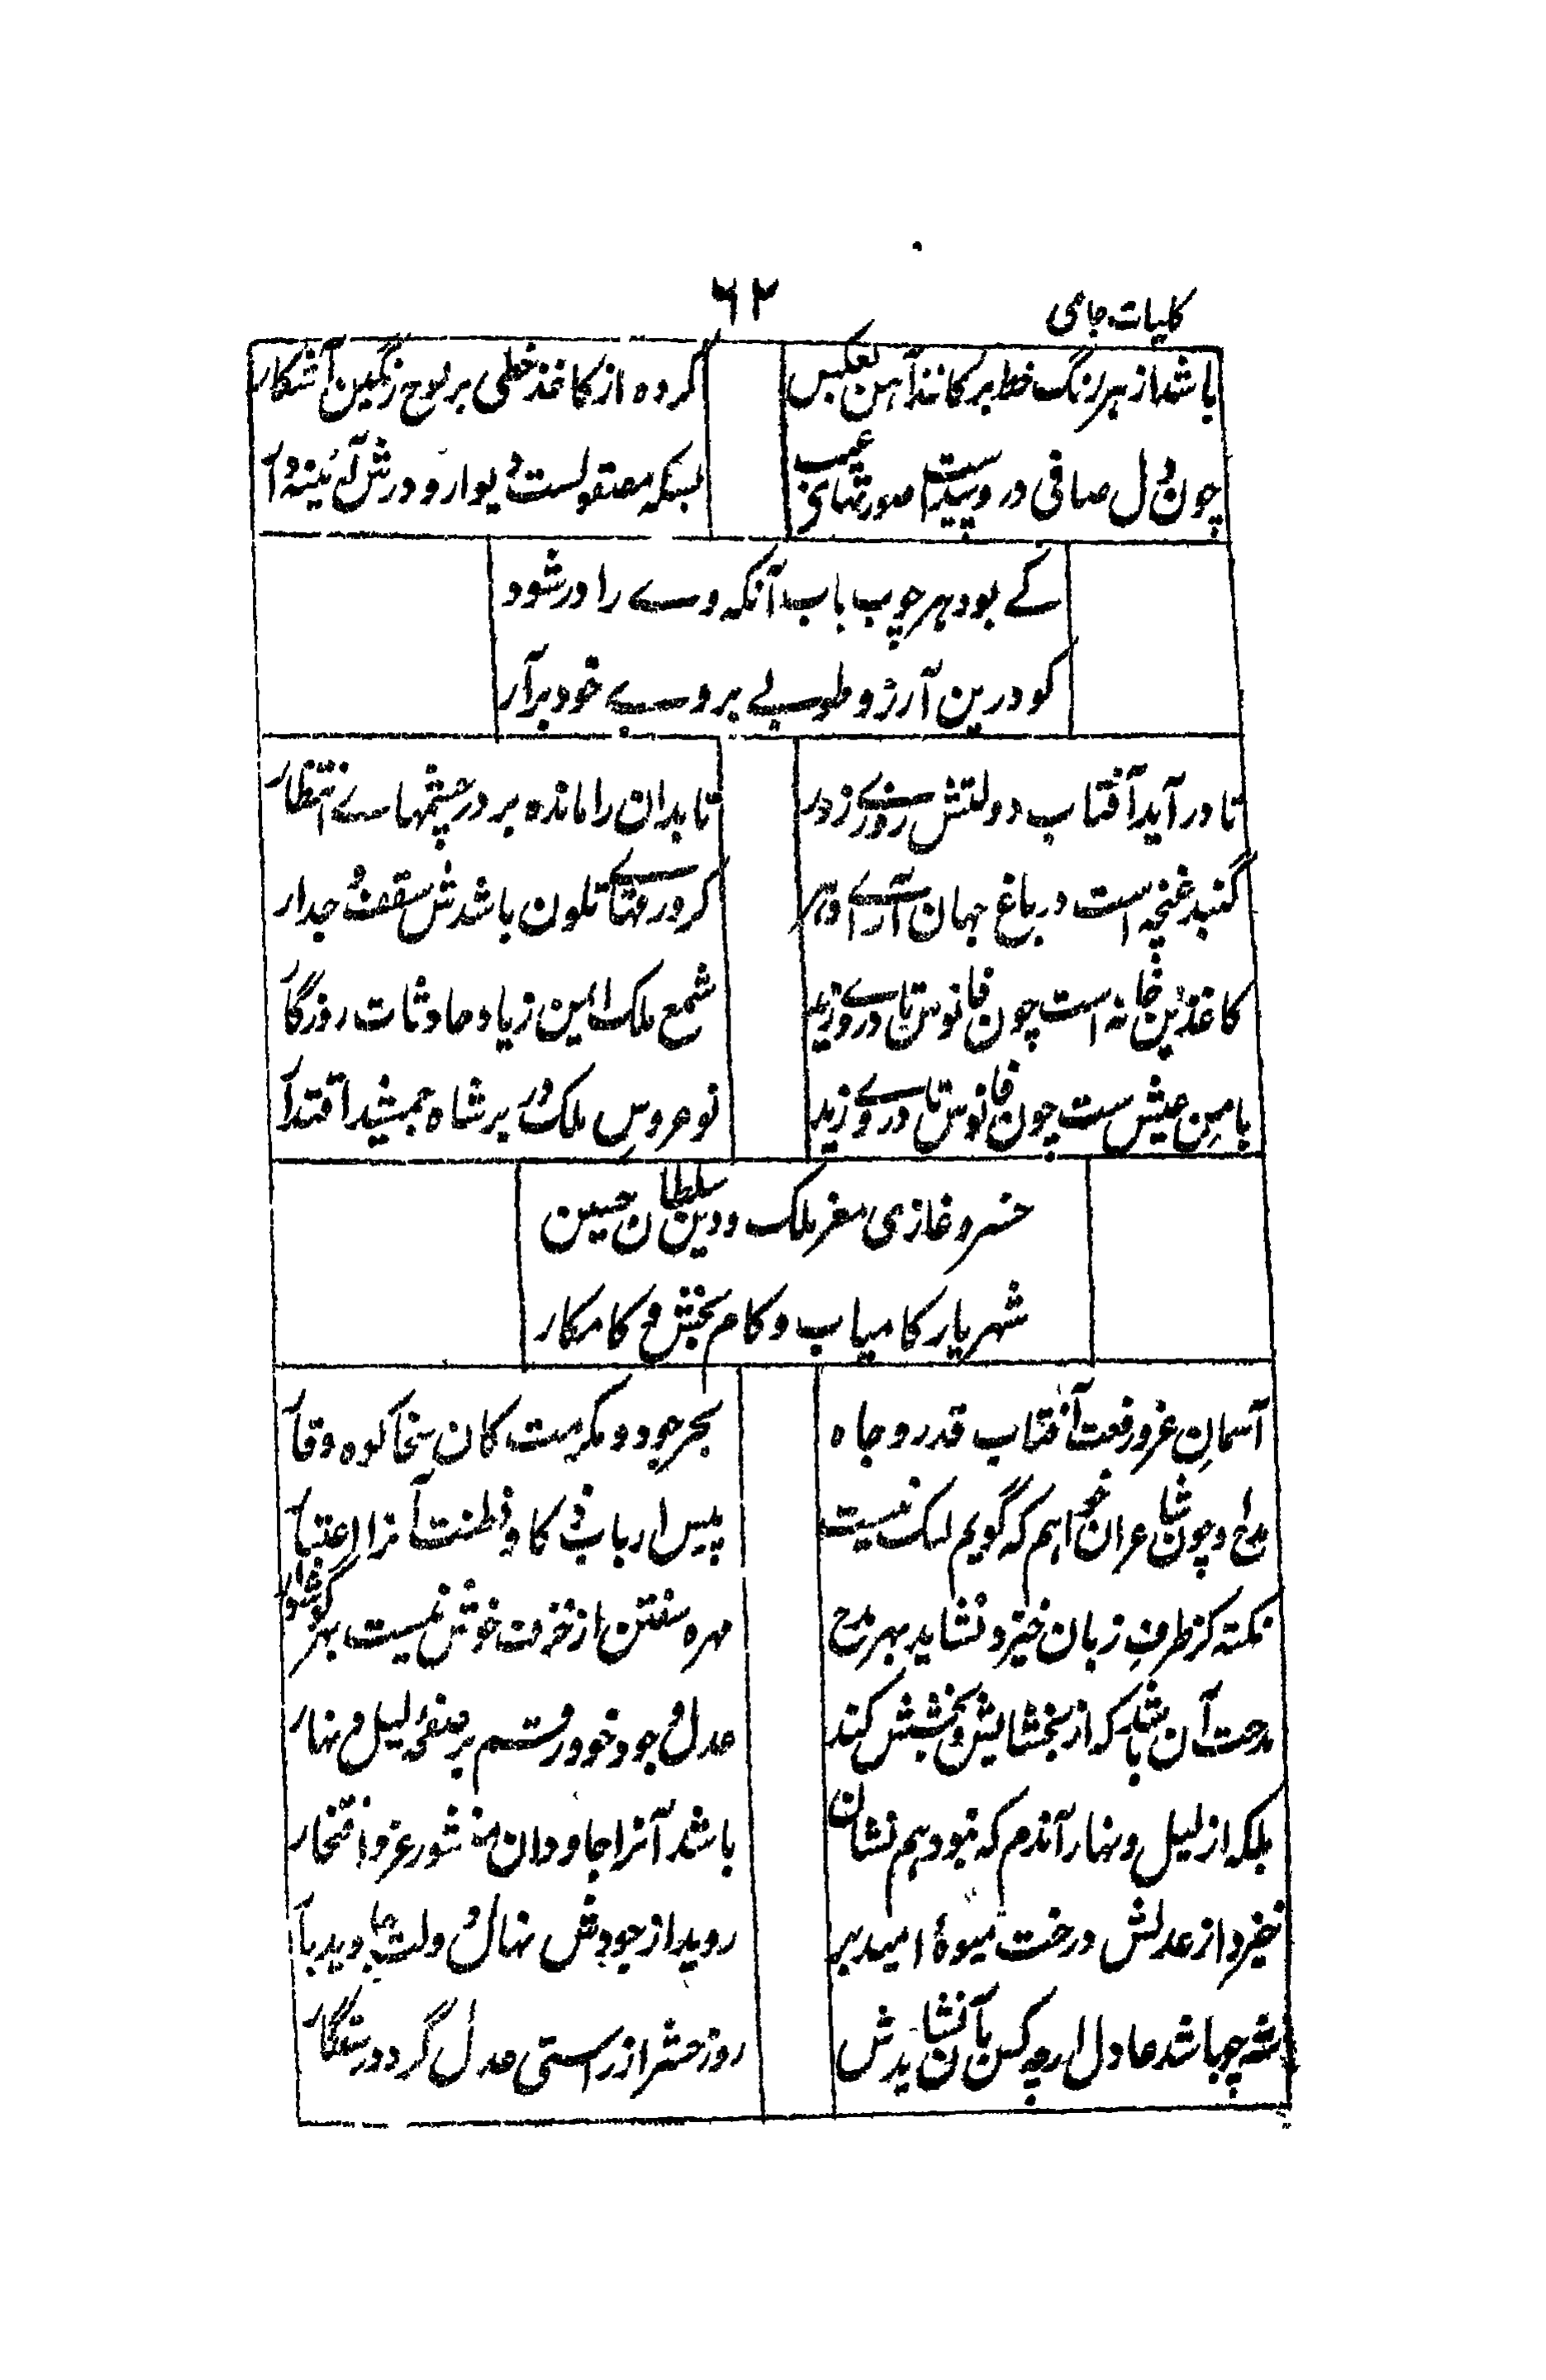 کلیات جامی
۶۲
باشد از هر رنگ خط بر کاغذ آهن بعکس
کرده از کاغذ خطی بر لوح رنگین آشکار
چون دل صافی درو پیداست صورتهای غیب
بسکه مصقولست دیوار و درش آئینه وار
کے بود هر چوب باب آنکه وے را در شود
کو درین آرزو طوبے بروے خود برآر
تا در آید آفتاب دولتش روزے ز در
تابدان را مانده بر در چشمهاے انتظار
گنبد غنچه است در باغ جهان آراے او
کز ورقهاے تلون باشدش سقف و جدار
کاغذین خانه است چون فانوس تا در وے زید
شمع ملک ایمن ز باد حادثات روزگار
مامن عیش ست چون فانوس تا در وے زید
نو عروس ملک در بر شاه جمشید اقتدار
خسرو غازی معز ملک و دین سلطان حسین
شهریار کامیاب و کام بخش و کامکار
آسمان عز و رفعت آفتاب قدر و جاه
بحر جود و مکرمت کان سخا کوه وقار
مدح او چون شاعران خواهم که گویم لیک نیست
پیش ارباب ذکا و فطنت آنرا اعتبار
نکته کز طرف زبان خیزد نشاید بهر مدح
مهره سفتن از خزف خوش نیست بهر گوشوار
مدحت آن باشد که از بخشایش و بخشش کند
عدل و جود خود رقم بر صفحه لیل و نهار
بلکه از لیل و نهار آندم که نبود هم نشان
باشد آنرا جاودان منشور عز و افتخار
خیزد از عدلش درخت میوهٔ امید بر
روید از جودش نهال دولت جاوید بار
شه چو باشد عادل ار چه کس بآن نشایدش
روز حشر از راستی عدل گردد رستگار